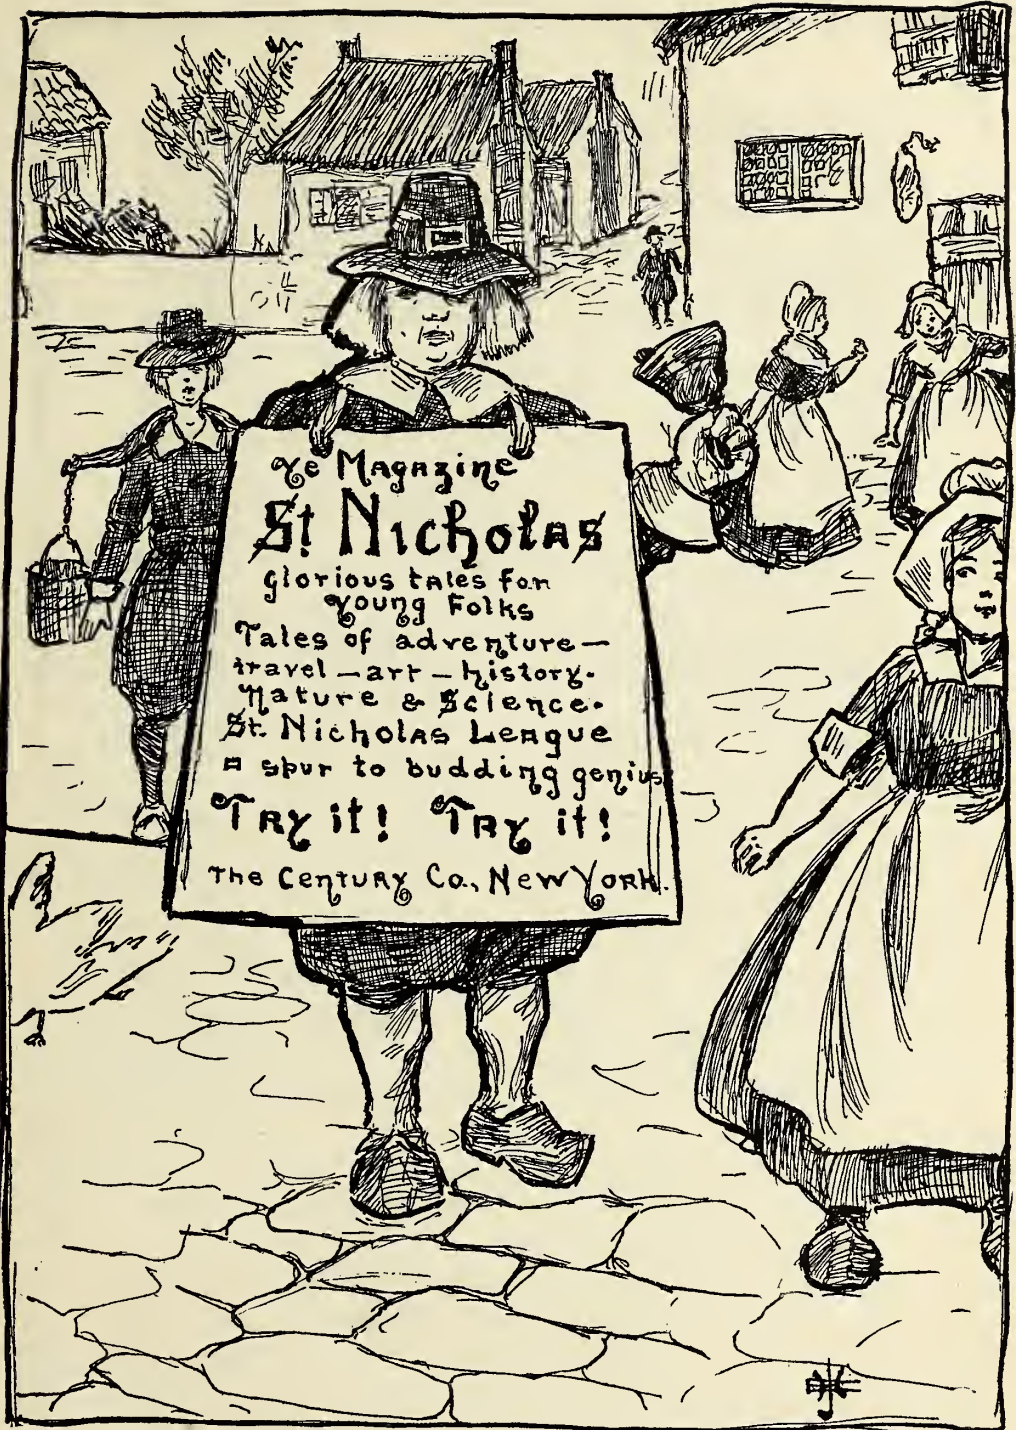 Ye Magazine
St Nicholas
Glorious tales for
Young Folks
Tales of adventure—
travel — art — history.
Nature & Science.
St. Nicholas League
a spur to budding genius
Try it! Try it!
The Century Co., New York.